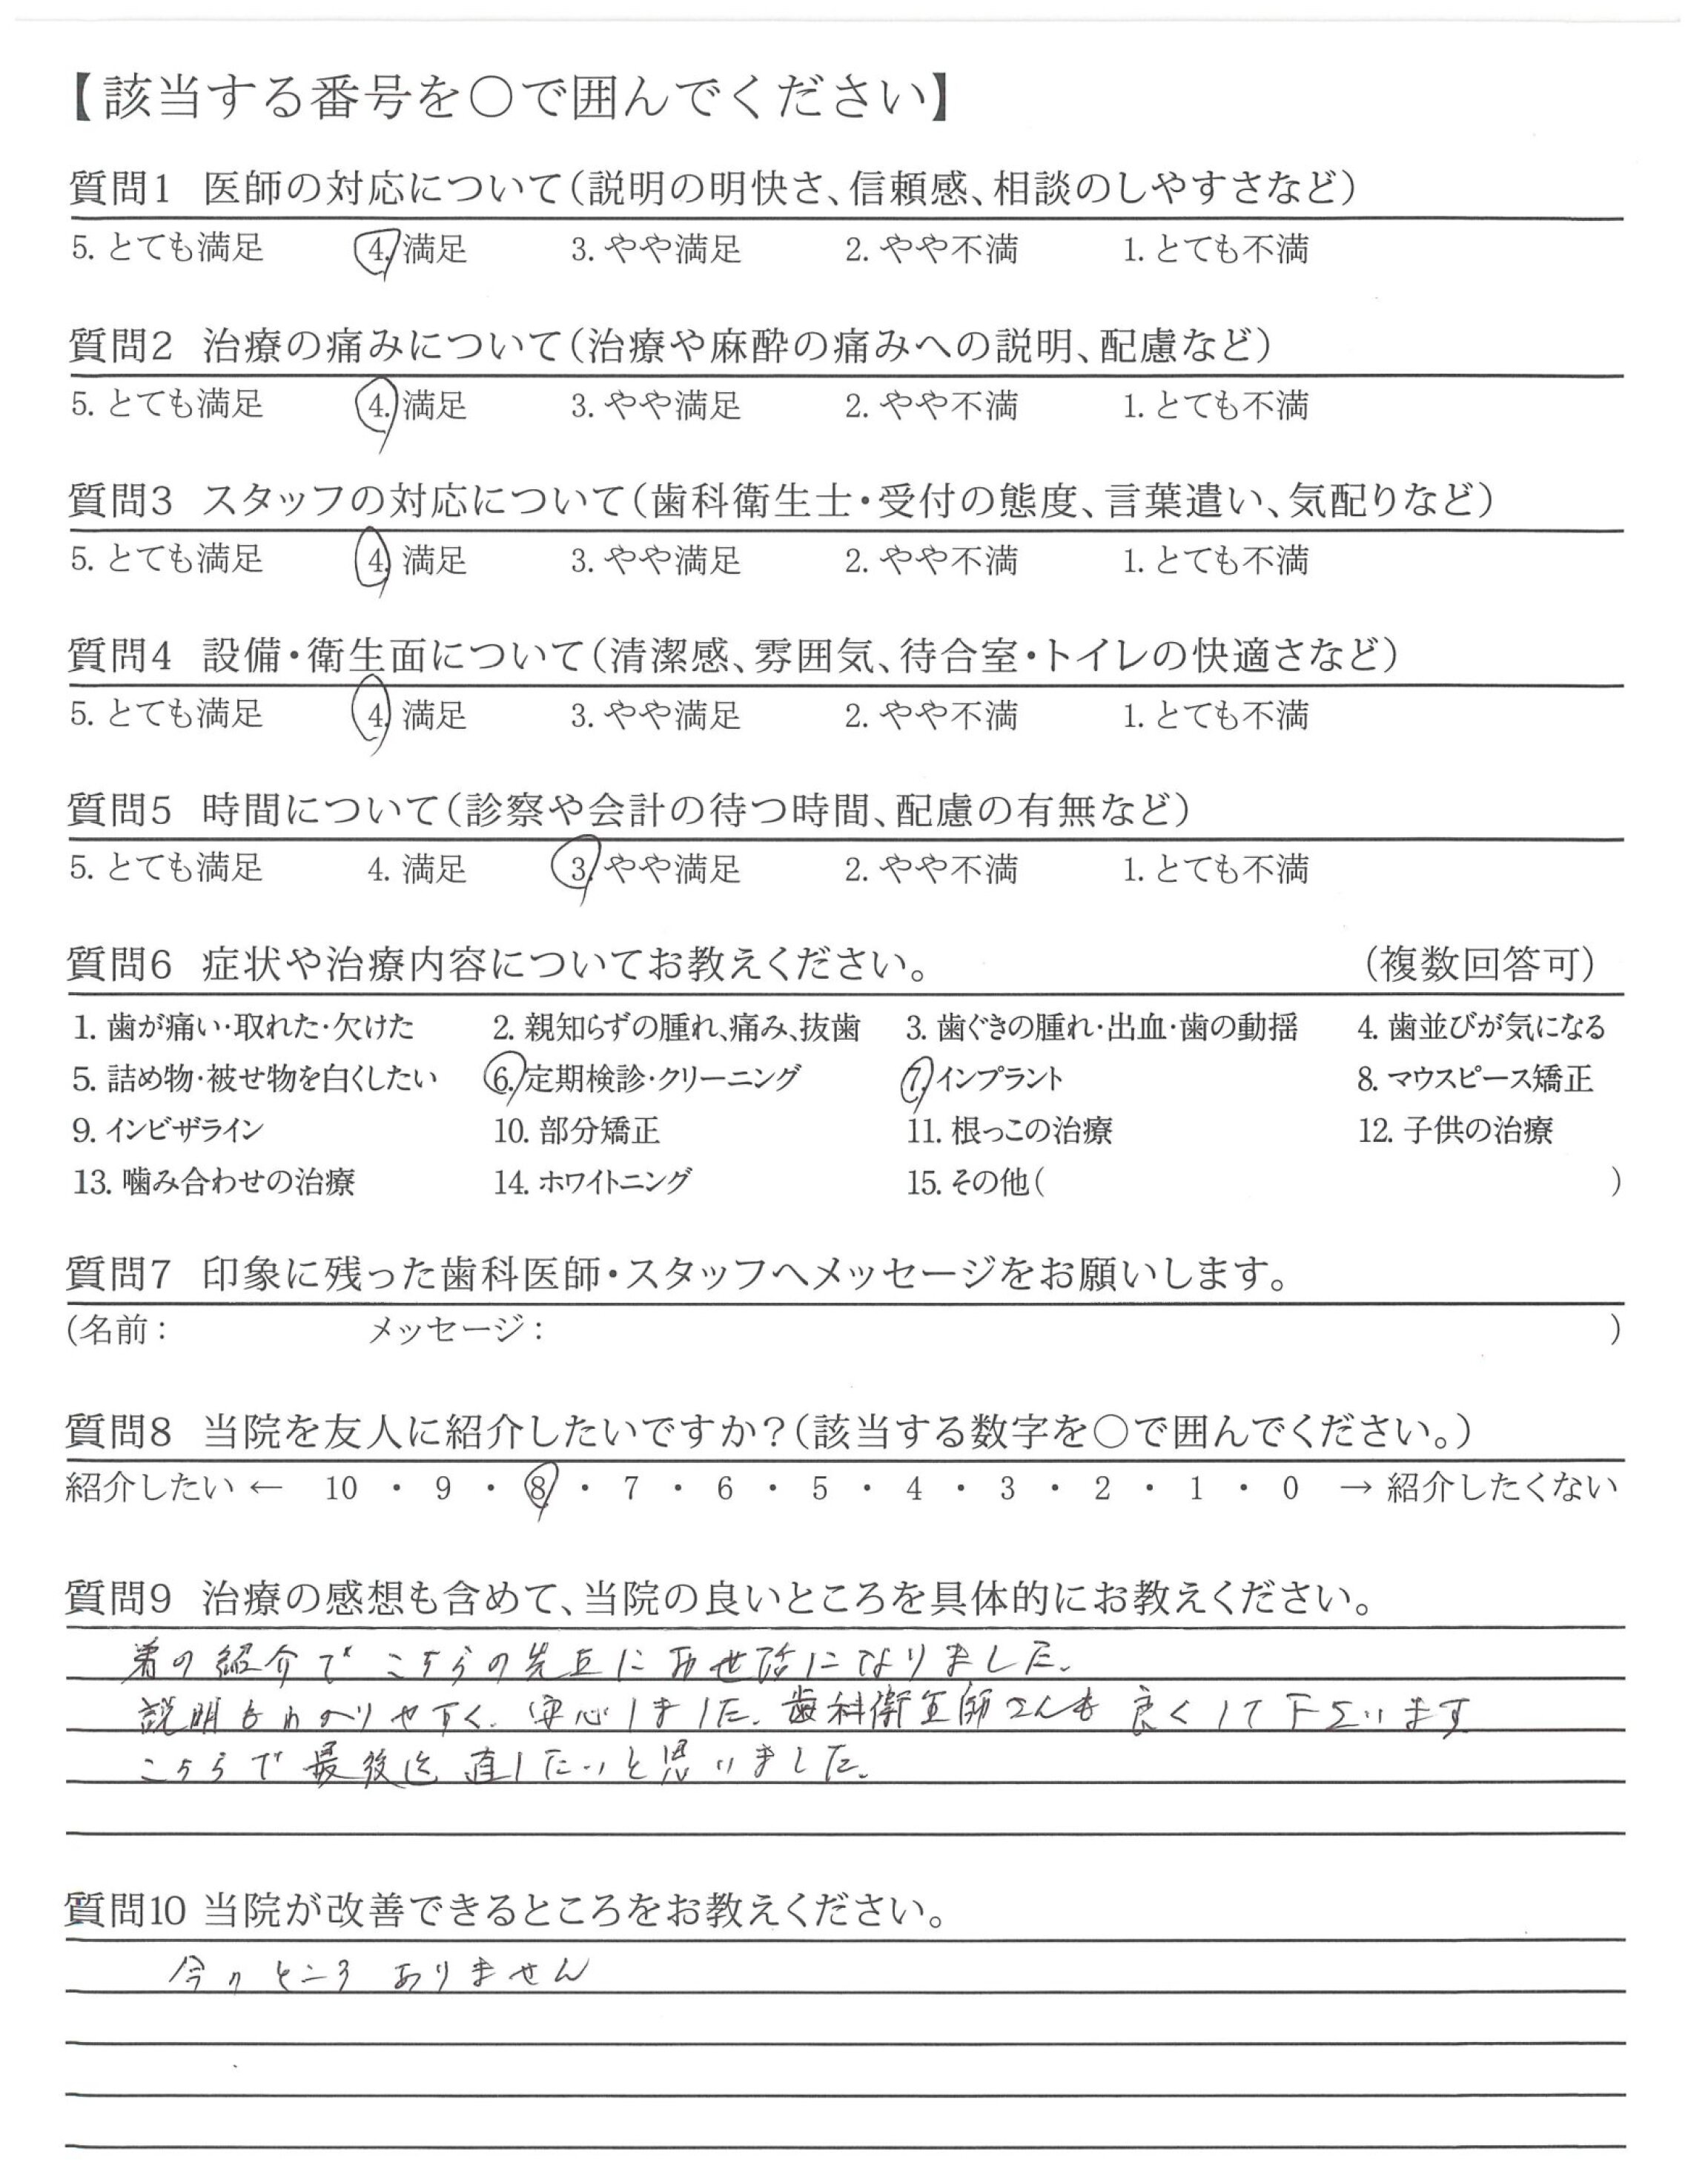 【該当する番号を○で囲んでください】
質問1 医師の対応について(説明の明快さ、信頼感、相談のしやすさなど)
5. とても満足 4. 満足 3. やや満足 2. やや不満 1. とても不満
質問2 治療の痛みについて(治療や麻酔の痛みへの説明、配慮など)
5. とても満足 4. 満足 3. やや満足 2. やや不満 1. とても不満
質問3 スタッフの対応について(歯科衛生士・受付の態度、言葉遣い、気配りなど)
5. とても満足 4. 満足 3. やや満足 2. やや不満 1. とても不満
質問4 設備・衛生面について(清潔感、雰囲気、待合室・トイレの快適さなど)
5. とても満足 4. 満足 3. やや満足 2. やや不満 1. とても不満
質問5 時間について(診察や会計の待つ時間、配慮の有無など)
5. とても満足 4. 満足 3. やや満足 2. やや不満 1. とても不満
質問6 症状や治療内容についてお教えください。 (複数回答可)
1. 歯が痛い・取れた・欠けた 2. 親知らずの腫れ、痛み、抜歯 3. 歯ぐきの腫れ・出血・歯の動揺 4. 歯並びが気になる
5. 詰め物・被せ物を白くしたい 6. 定期検診・クリーニング 7. インプラント 8. マウスピース矯正
9. インビザライン 10. 部分矯正 11. 根っこの治療 12. 子供の治療
13. 噛み合わせの治療 14. ホワイトニング 15. その他( )
質問7 印象に残った歯科医師・スタッフへメッセージをお願いします。
(名前: メッセージ: )
質問8 当院を友人に紹介したいですか?(該当する数字を○で囲んでください。)
紹介したい ← 10 ・ 9 ・ 8 ・ 7 ・ 6 ・ 5 ・ 4 ・ 3 ・ 2 ・ 1 ・ 0 → 紹介したくない
質問9 治療の感想も含めて、当院の良いところを具体的にお教えください。
の紹介で こちらの先生にお世話になりました。
説明もわかりやすく、安心しました。歯科衛生師さんも 良くして下さいます
こちらで最後迄 直したいと思いました。
質問10 当院が改善できるところをお教えください。
今のところ ありません